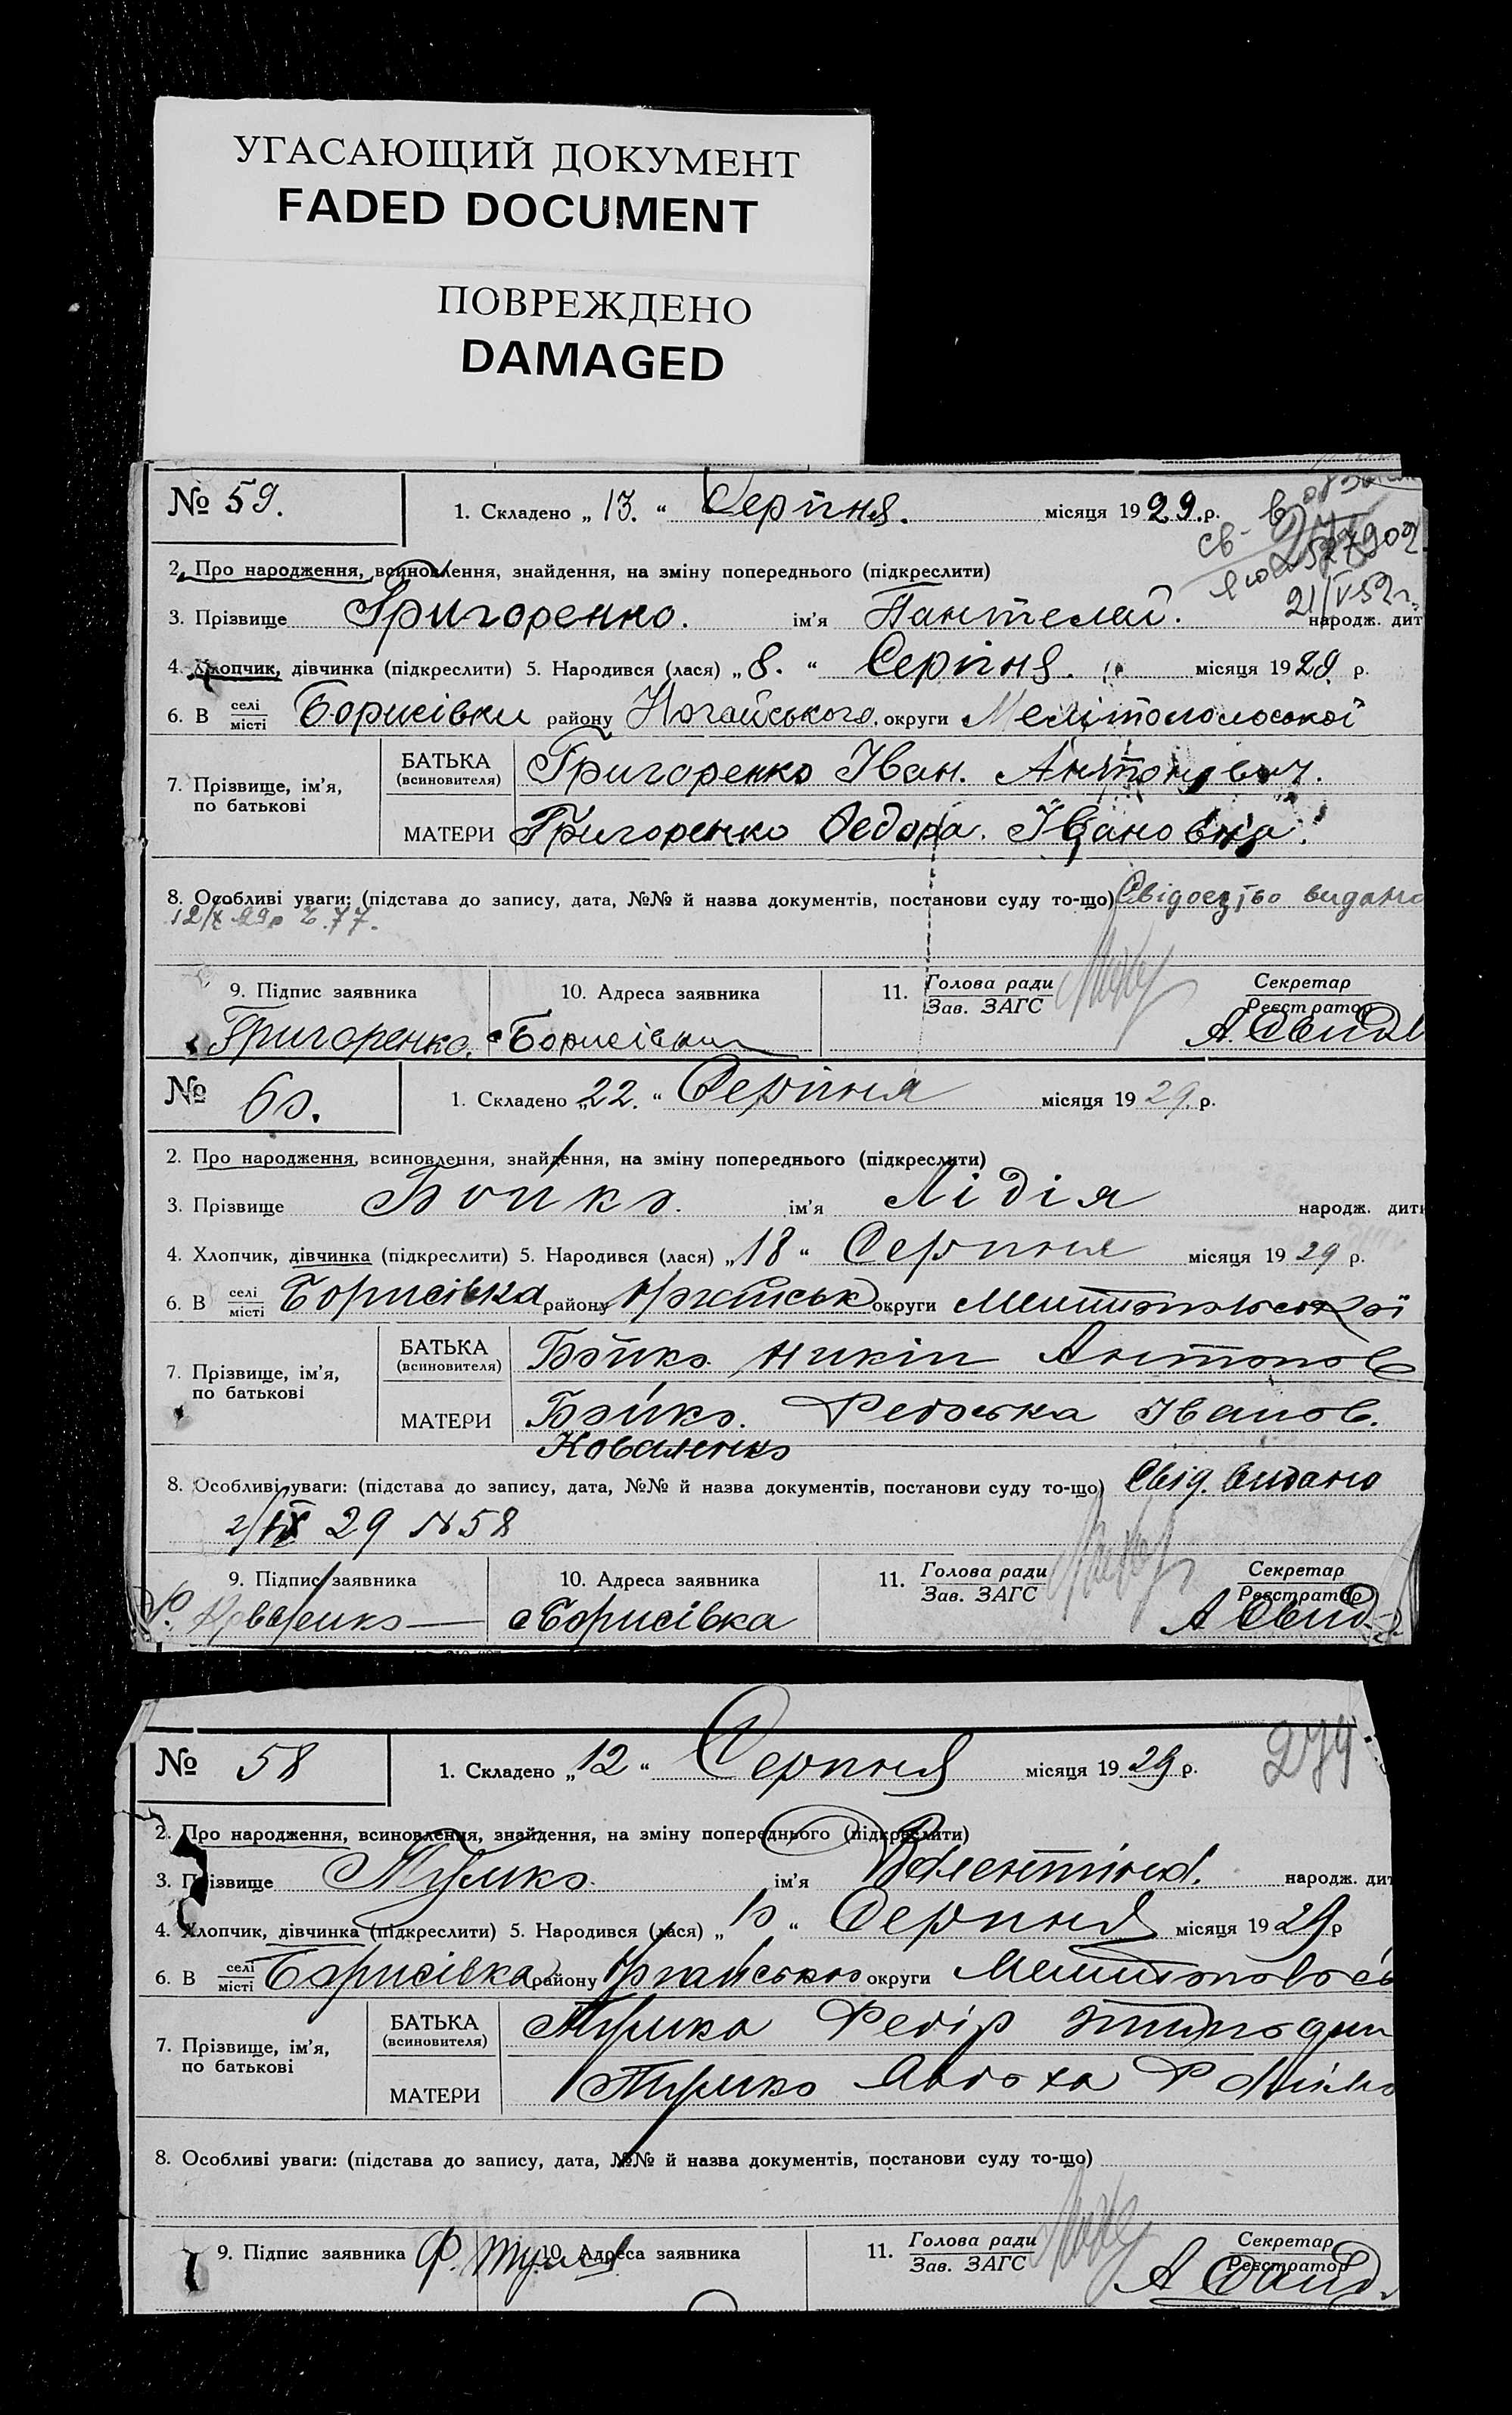 УГАСАЮЩИЙ ДОКУМЕНТ
FADED DOCUMENT
ПОВРЕЖДЕНО
DAMAGED
№ 59. 1. Складено „ 13. “ Серпня. місяця 1929. р.
св-
21/V 52 г.
2. Про народження, всиновлення, знайдення, на зміну попереднього (підкреслити)
3. Прізвище Григоренко. ім’я Пантелей. народж. дит
4. Хлопчик, дівчинка (підкреслити) 5. Народився (лася) „ 8. “ Серпня. місяця 1929. р.
6. В селі місті Борисівки району Ногайського. округи Мелітополоської
7. Прізвище, ім’я, по батькові
БАТЬКА (всиновителя) Григоренко Іван. Антонович.
МАТЕРИ Григоренко Федора. Івановна.
8. Особливі уваги: (підстава до запису, дата, №№ й назва документів, постанови суду то-що) Свідоцтво видано
12/X 29р Ч. 77.
9. Підпис заявника 10. Адреса заявника 11. Голова ради Зав. ЗАГС Секретар Реєстратор
Григоренко. с Борисівки А.
№ 60. 1. Складено „ 22. “ Серпня місяця 1929. р.
2. Про народження, всиновлення, знайдення, на зміну попереднього (підкреслити)
3. Прізвище Бойко. ім’я Лідія народж. дити
4. Хлопчик, дівчинка (підкреслити) 5. Народився (лася) „ 18 “ Серпня місяця 1929 р.
6. В селі місті Борисівка району Ногайськ округи Мелитопольської
7. Прізвище, ім’я, по батькові
БАТЬКА (всиновителя) Бойко Микіп Антонов
МАТЕРИ Бойко. Федоська Іванов.
Коваленко
8. Особливі уваги: (підстава до запису, дата, №№ й назва документів, постанови суду то-що) Свід. видано
2/IX 29 № 58
9. Підпис заявника 10. Адреса заявника 11. Голова ради Зав. ЗАГС Секретар Реєстратор
Коваленко с Борисівка А Свид
№ 58 1. Складено „ 12 “ Серпня місяця 1929 р. 274
2. Про народження, всиновлення, знайдення, на зміну попереднього (підкреслити)
3. Прізвище ім’я Валентіна. народж. дит
4. Хлопчик, дівчинка (підкреслити) 5. Народився (лася) „ 10 “ Серпня місяця 1929 р
6. В селі місті Борисівка району Ногайського округи Мелитопольсь
7. Прізвище, ім’я, по батькові
БАТЬКА (всиновителя) Федір
МАТЕРИ Явдоха
8. Особливі уваги: (підстава до запису, дата, №№ й назва документів, постанови суду то-що)
9. Підпис заявника Ф. 10. Адреса заявника 11. Голова ради Зав. ЗАГС Секретар Реєстратор
А Свид.